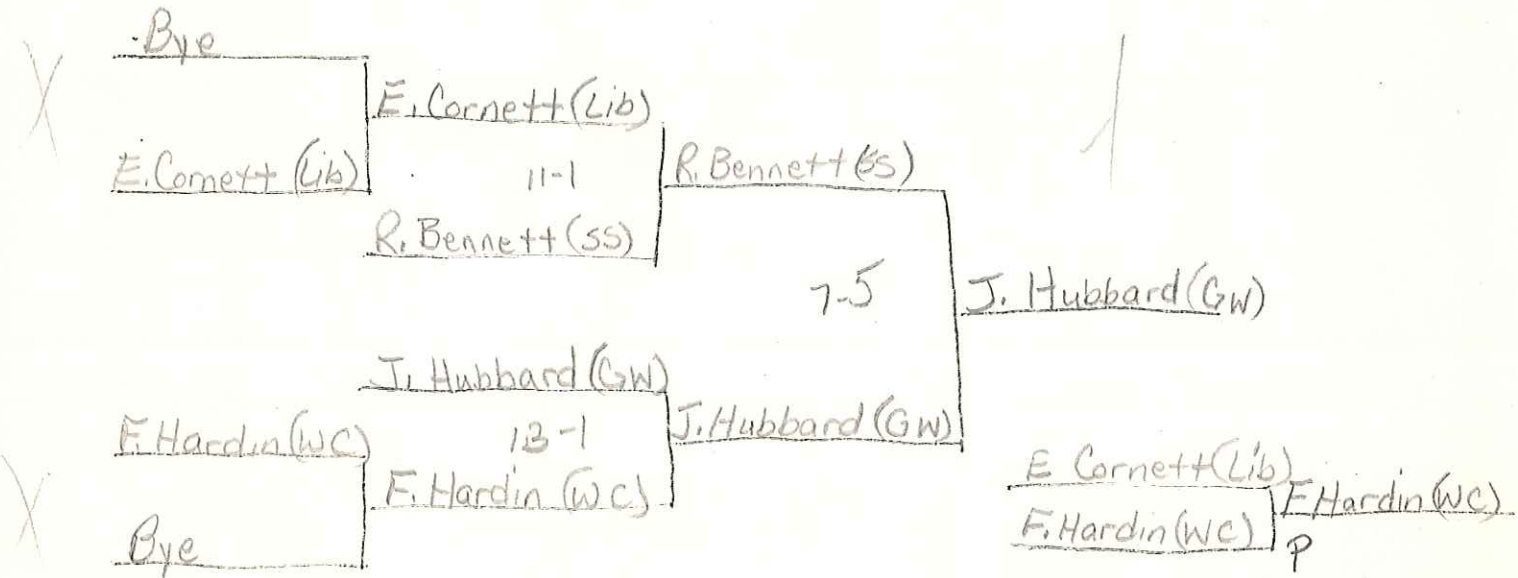 Bye
E. Cornett (Lib)
E. Cornett (Lib)
11-1
R. Bennett (SS)
R. Bennett (SS)
7-5
J. Hubbard (GW)
J. Hubbard (GW)
13-1
F. Hardin (WC)
F. Hardin (WC)
Bye
J. Hubbard (GW)
E Cornett (Lib)
F. Hardin (WC)
F Hardin (WC)
P
1
X
X